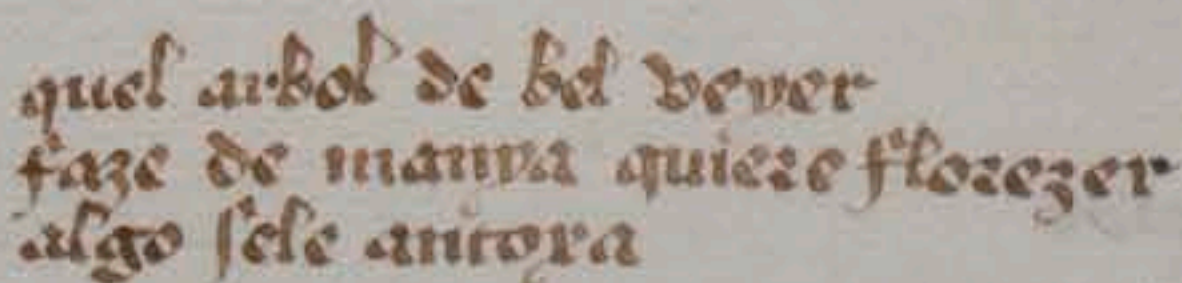 quel arbol de bel veyer
faze de manyra quiere florezer
algo sele antoxa